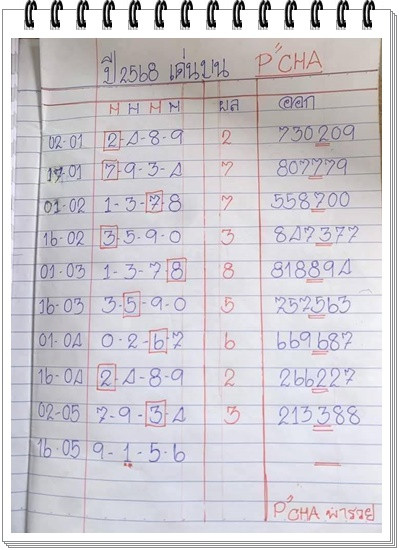 ปี 2568 เด่นบน P"CHA
ห ห ห ห ผล ออก
02-01 2-4-8-9 2 730209
17-01 7-9-3-4 7 807779
01-02 1-3-7-8 7 558700
16-02 3-5-9-0 3 847377
01-03 1-3-7-8 8 818894
16-03 3-5-9-0 5 257563
01-04 0-2-6-7 6 669687
16-04 2-4-8-9 2 266227
02-05 7-9-3-4 3 213388
16-05 9-1-5-6
P"CHA พารวย